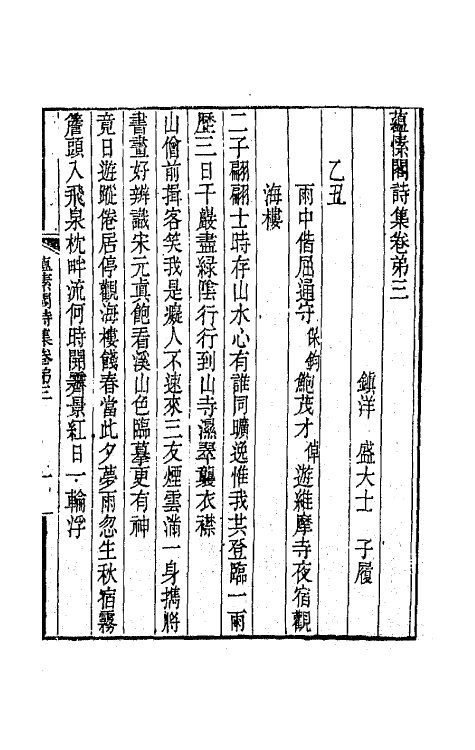 蘊愫閣詩集卷弟三
鎮洋　盛大士　子履
乙丑
雨中偕屈通守保鈞鮑茂才倬遊維摩寺夜宿觀
海樓
二子翩翩士時存山水心有誰同曠逸惟我共登臨一雨
歷三日千巖盡綠陰行行到山寺濕翠襲衣襟
山僧前揖客笑我是癡人不速來三友煙雲滿一身攜將
書畫好辨識宋元真飽看溪山色臨摹更有神
竟日遊蹤倦居停觀海樓餞春當此夕夢雨忽生秋宿霧
簷頭入飛泉枕畔流何時開霽景紅日一輪浮
蘊愫閣詩集卷弟三　一